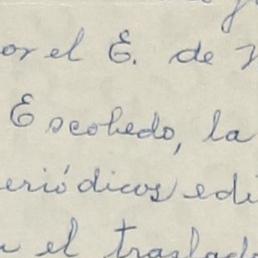 or el E. de
Escobedo, la
eriódicos edi
el traslad